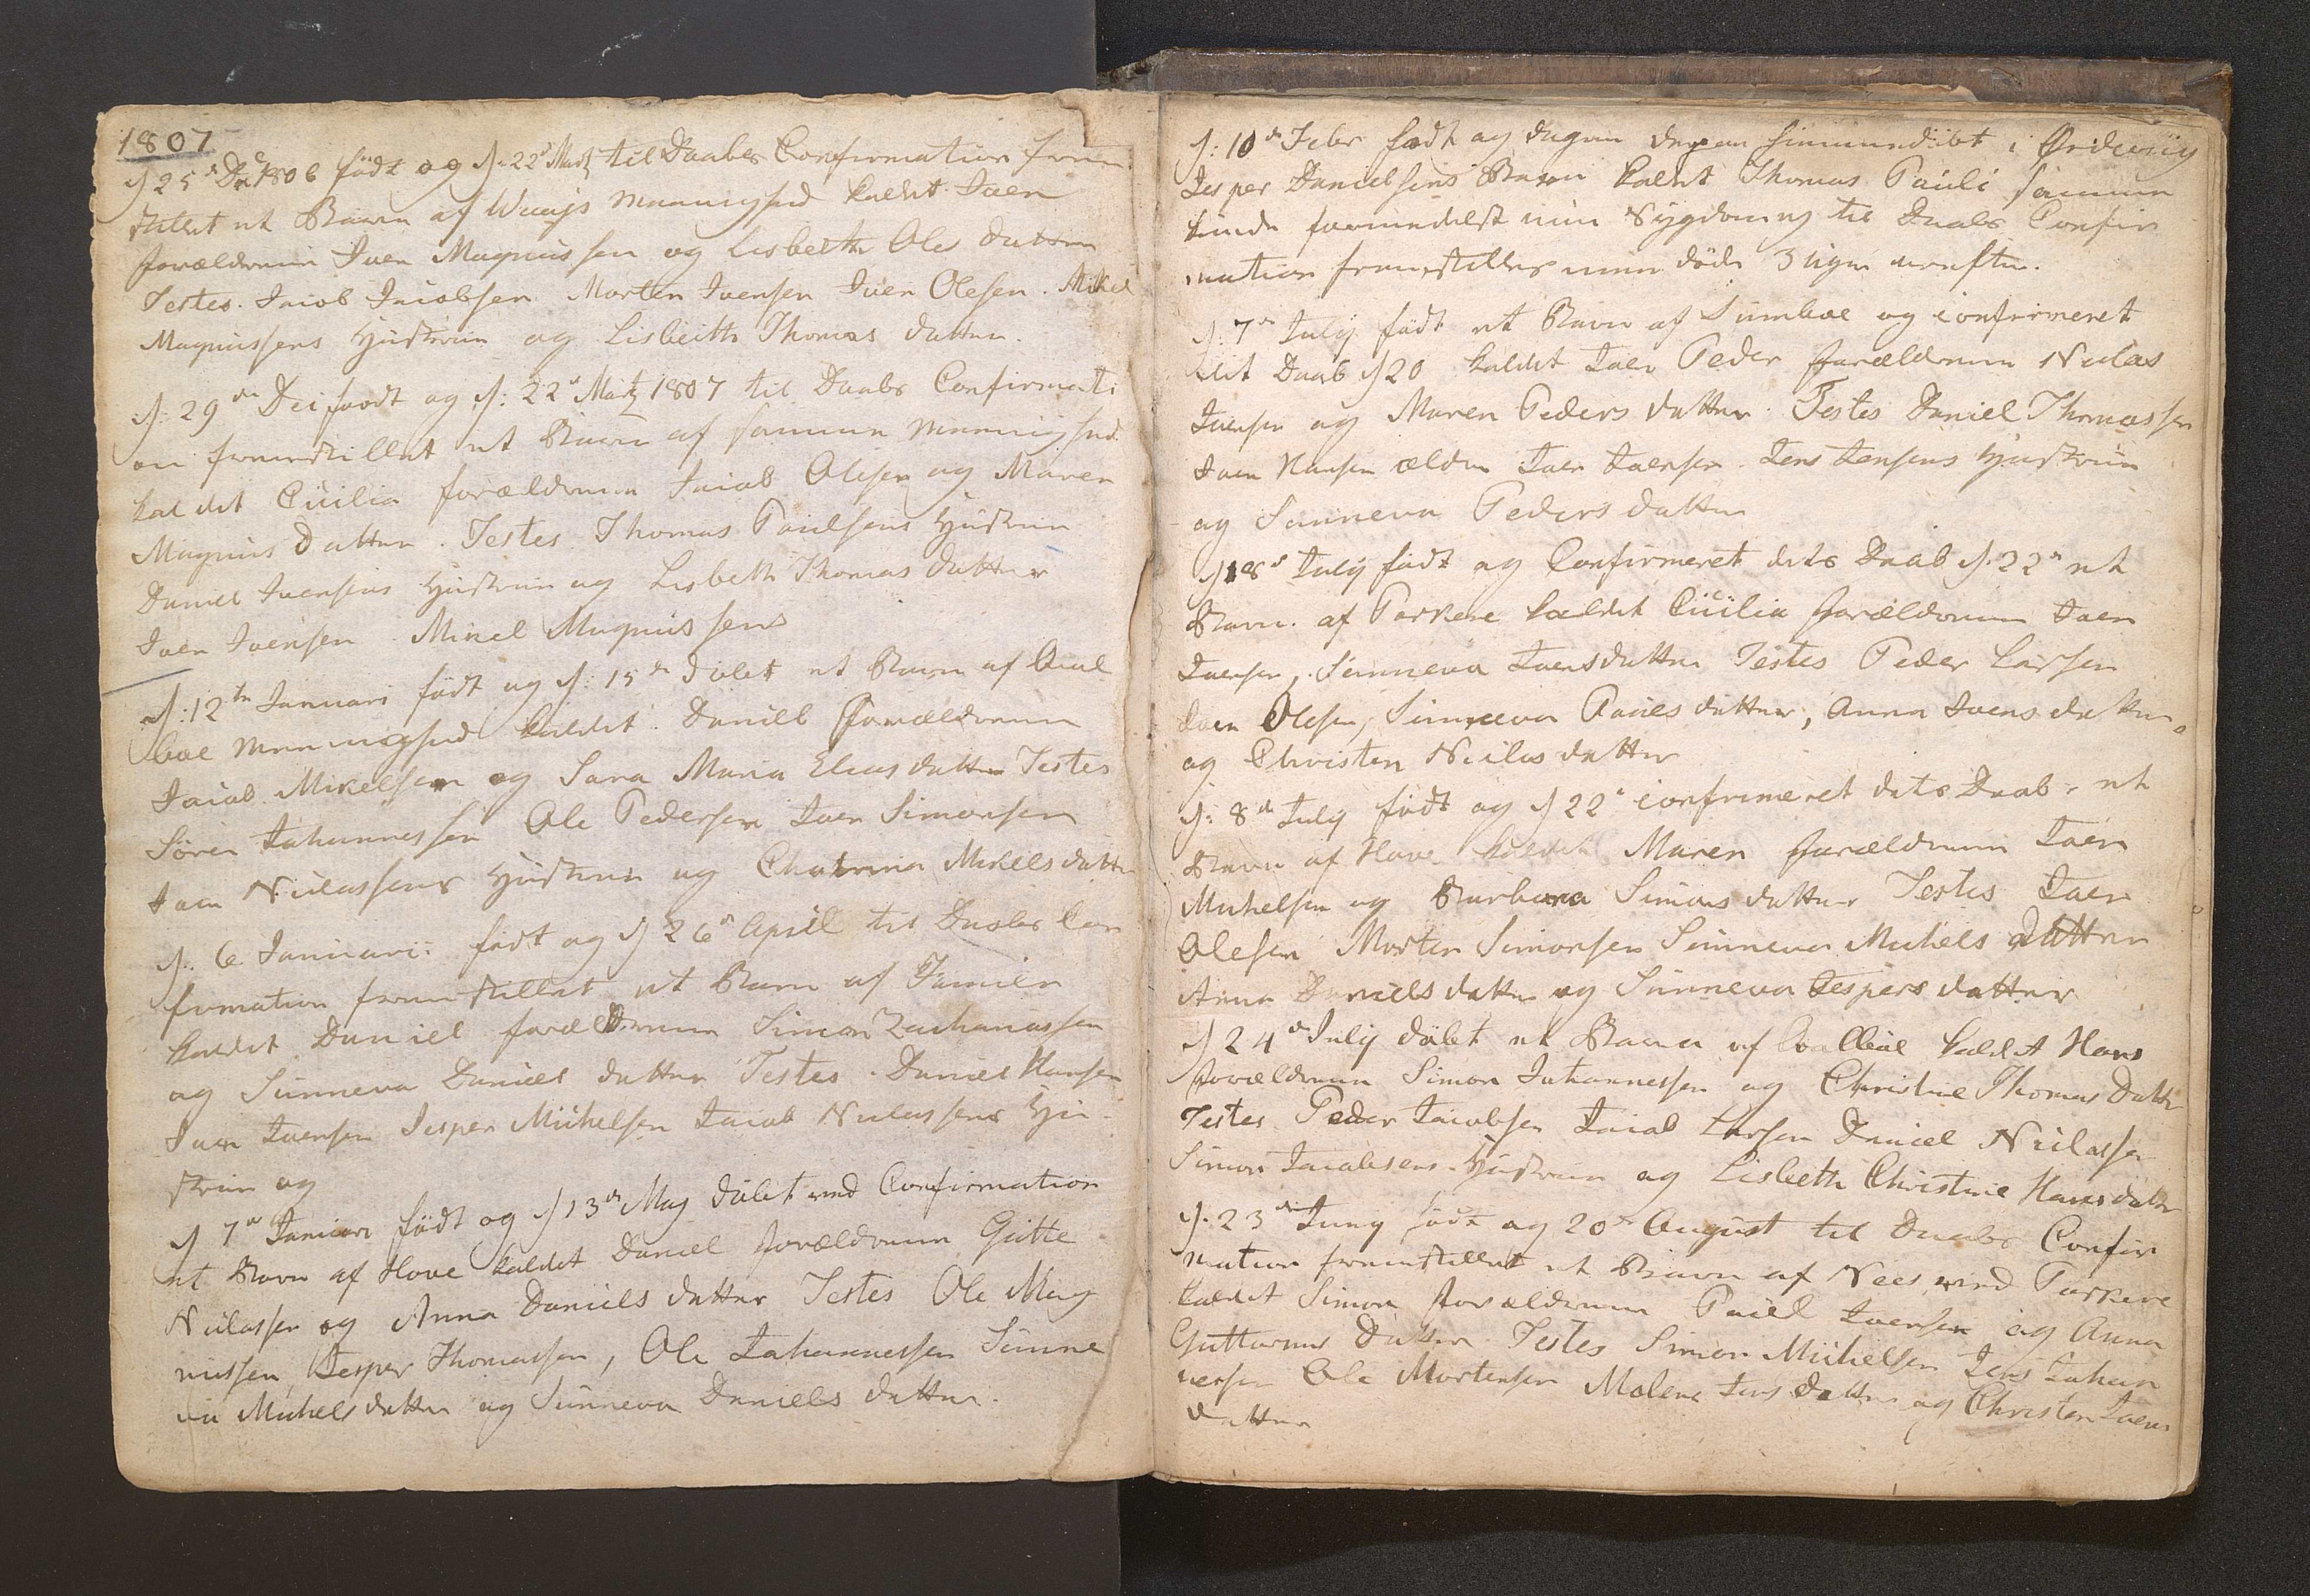 1807
d 25de Dec 1806 födt og d: 22d Martz til Daabs Confirmation frem
stillet et Barn af Waags Meenighed kaldet Joen
Forældrene Joen Magnussen og Lisbeth Ole datter
Testes. Jacob Jacobsen Morten Joensen Joen Olesen. Mikel
Magnussens Hustrue og Lisbeth Thomas datter.
d: 29de Dec födt og d: 22d Martz 1807 til Daabs Confirmati
on fremstillet et Barn af samme Meenighed
kaldet Cicilia forældrene Jacob Olesen og Maren
Magnus Datter. Testes Thomas Poulsens Hustrue
Daniel Joensens Hustrue og Lisbeth Thomas datter
Joen Joensen. Mikel Magnussens
d: 12te Januari födt og d: 15de döbt et Barn af Qval
bøe Meenighed kaldet. Daniel Forældrene
Jacob Mikelsen og Sara Maria Elias datter Testes
Sören Johannessen Ole Pedersen Joen Simonsen
Joen Niclassens Hustrue og Chatrina Mikels datter
d. 6 Januari: födt og d 26de April til Daabs Con
firmation fremstillet et Barn af Famien
kaldet Daniel forældrene Simon Zachariassen
og Sunneva Daniels datter Testes. Daniel Hansen
Joen Joensen Jesper Michelsen Jacob Niclassens Hu
strue og
d 7de Januari födt og d 13de May döbt med Confirmation
et Barn af Hove kaldet Daniel forældrene Gutte
Niclassen og Anna Daniels datter Testes Ole Mag
nussen, Jesper Thomassen, Ole Johannessen Sunne
va Michels datter og Sunneva Daniels datter.
d: 10de Febr født og dagen derpaa hiemmedöbt i Ørdeviig
Jesper Danielsens Barn kaldet Thomas Pauli samme
kunde formedelst min Sygdom ej til Daabs Confir
mation fremstilles men döde 3 uger derefter.
d: 7de July födt et Barn af Sumboe og confirmeret
dit Daab d 20 kaldet Joen Peder forældrene Niclas
Joensen og Maren Peders datter. Testes Daniel Thomassen
Joen Hansen ældre Joen Joensen. Jens Jensens Hustrue
og Sunneva Peders datter
d 18de July födt og Confirmeret dets Daab d. 22de et
Barn. af Porkere kaldet Cicilia forældrene Joen
Joensen, Sunneva Joensdatter Testes Peder Larsen
Joen Olesen, Sunneva Poules datter, Anna Joens datter
og Christen Niclas datter
d: 8de July födt og d 22de confirmeret dets Daab, et
Barn af Hove kaldet Maren forældrene Joen
Michelsen og Barbara Simons datter Testes Joen
Olesen Morten Simonsen Sunneva Michels datter
Anna Daniels datter og Sunneva Jespers datter
d 24de July döbt et Barn af Qvalböe kaldet Hans
forældrene Simon Johannessen og Christine Thomas Datter
Testes Peder Jacobsen Jacob Larsen Daniel Niclassen
Simon Jacobsens Hustrue og Lisbeth Christine Hans datter
d. 23de Juny födt og 20de August til Daabs Confir
mation fremstillet et Barn af Nees ved Porkere
kaldet Simon forældrene Poul Joensen og Anna
Guttorms Datter Testes Simon Michelsen Jens Johan
nessen Ole Mortensen Malene Jens datter og Christen Joens
datter